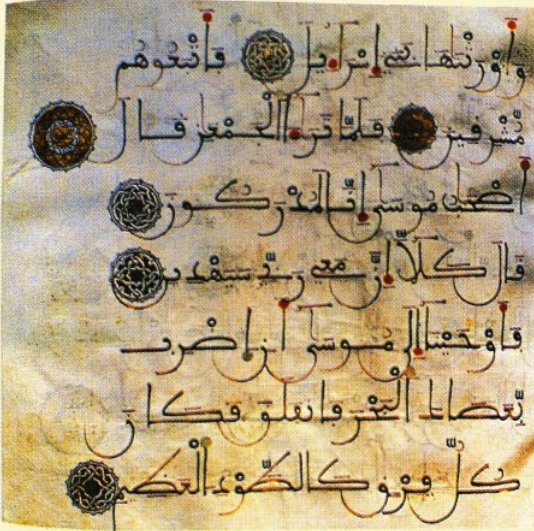 وَأَوْرَثْنَٰهَا بَنِىٓ إِسْرَآءِيلَ فَأَتْبَعُوهُم
مُّشْرِقِينَ فَلَمَّا تَرَٰٓءَا ٱلْجَمْعَٰنِ قَالَ
أَصْحَٰبُ مُوسَىٰٓ إِنَّا لَمُدْرَكُونَ
قَالَ كَلَّآ إِنَّ مَعِىَ رَبِّى سَيَهْدِينِ
فَأَوْحَيْنَآ إِلَىٰ مُوسَىٰٓ أَنِ ٱضْرِب
بِّعَصَاكَ ٱلْبَحْرَ فَٱنفَلَقَ فَكَانَ
كُلُّ فِرْقٍ كَٱلطَّوْدِ ٱلْعَظِيمِ